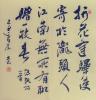 折花逢驛使
寄與隴頭人
江南無所有聊
贈一枝春